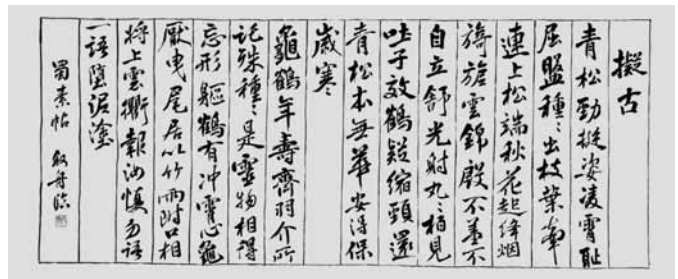 擬古
青松勁挺姿凌霄恥
屈盤種〻出枝葉牽
連上松端秋花起絳烟
旖旎雲錦殷不羞不
自立舒光射丸〻柏見
吐子效鶴疑縮頸還
青松本無華安得保
歲寒
龜鶴年壽齊羽介所
託殊種〻是靈物相得
忘形軀鶴有冲霄心龜
厭曳尾居以竹兩附口相
將上雲衢報汝慎勿語
一語墮泥塗
蜀素帖 舟臨